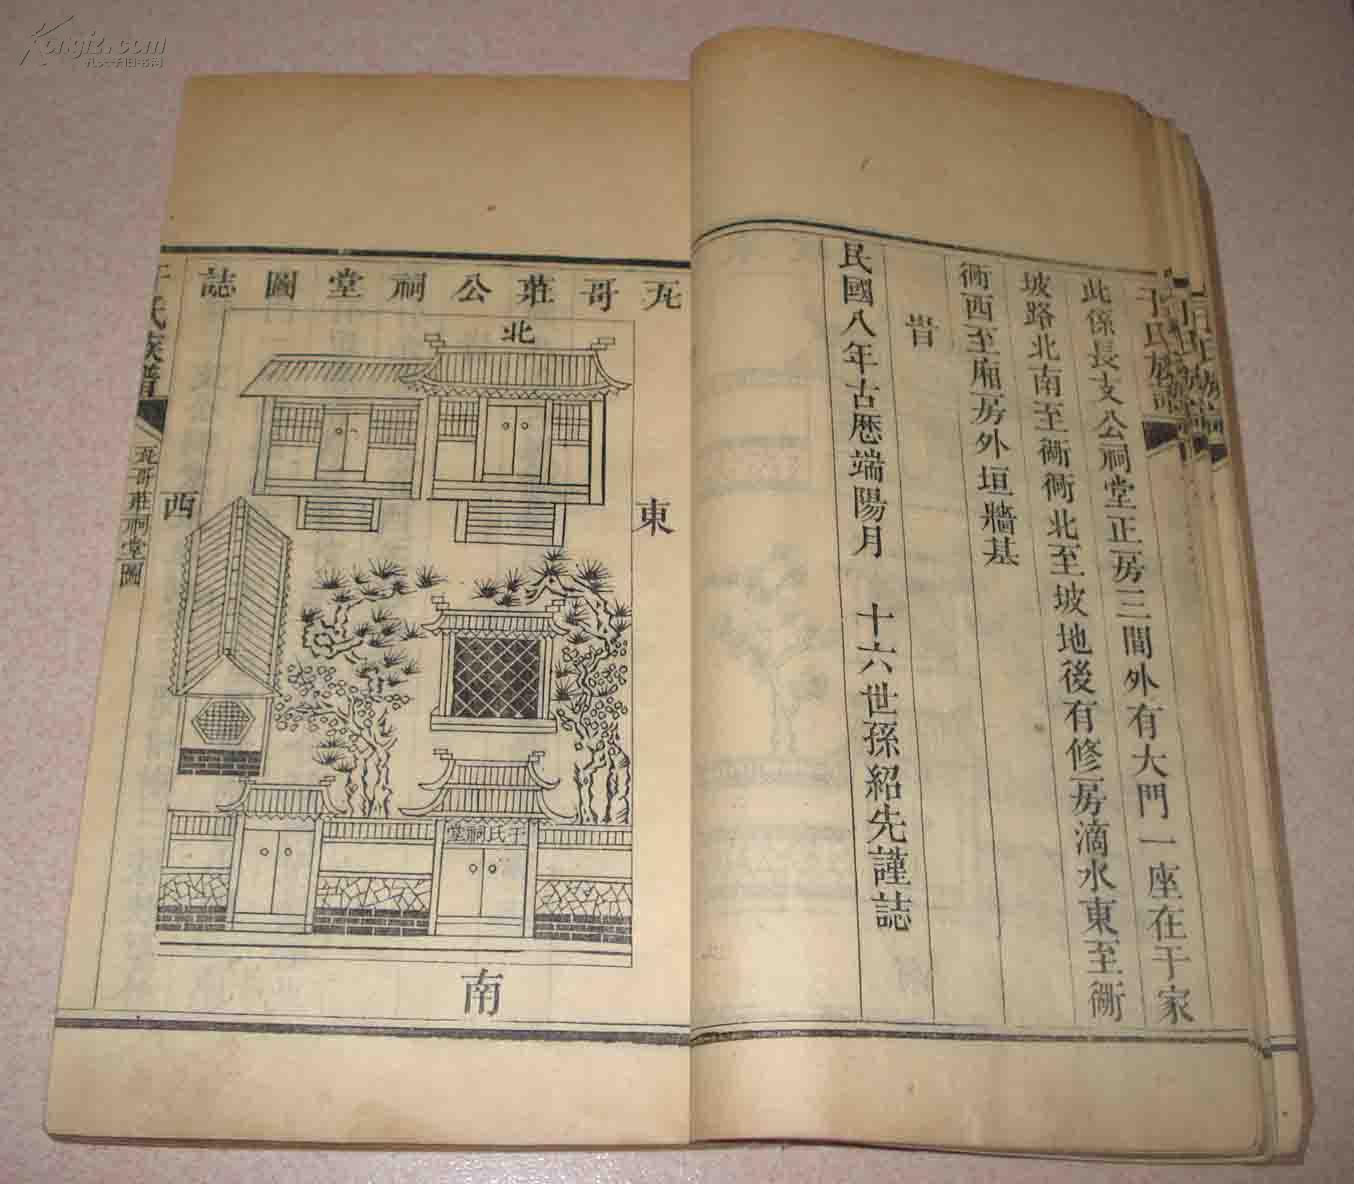 Kongfz.com
孔夫子旧书网
于氏族譜
此係長支公祠堂正房三間外有大門一座在于家
坡路北南至衚衕北至坡地後有修房滴水東至衚
衕西至廂房外垣牆基
旹
民國八年古厯端陽月 十六世孫紹先謹誌
瓦哥莊公祠堂圖誌
北
東
西
于氏祠堂
南
于氏族譜
瓦哥莊祠堂圖